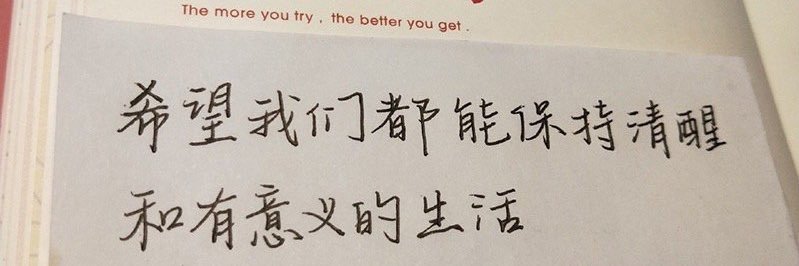 The more you try , the better you get .
希望我们都能保持清醒
和有意义的生活